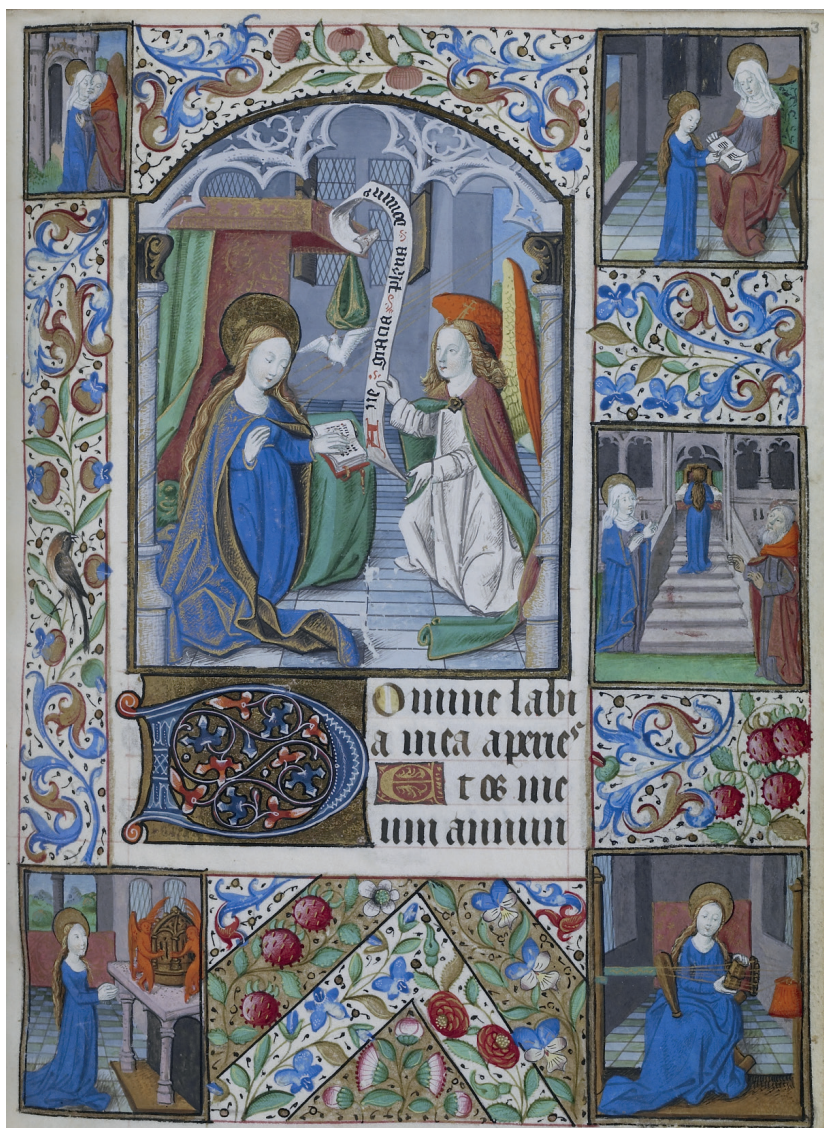 3
Aue gracia plena
Domine labi
a mea aperies
Et os me
um annun